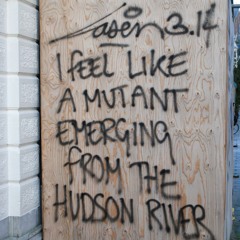 Laser 3.14
I FEEL LIKE
A MUTANT
EMERGING
FROM THE
HUDSON RIVER